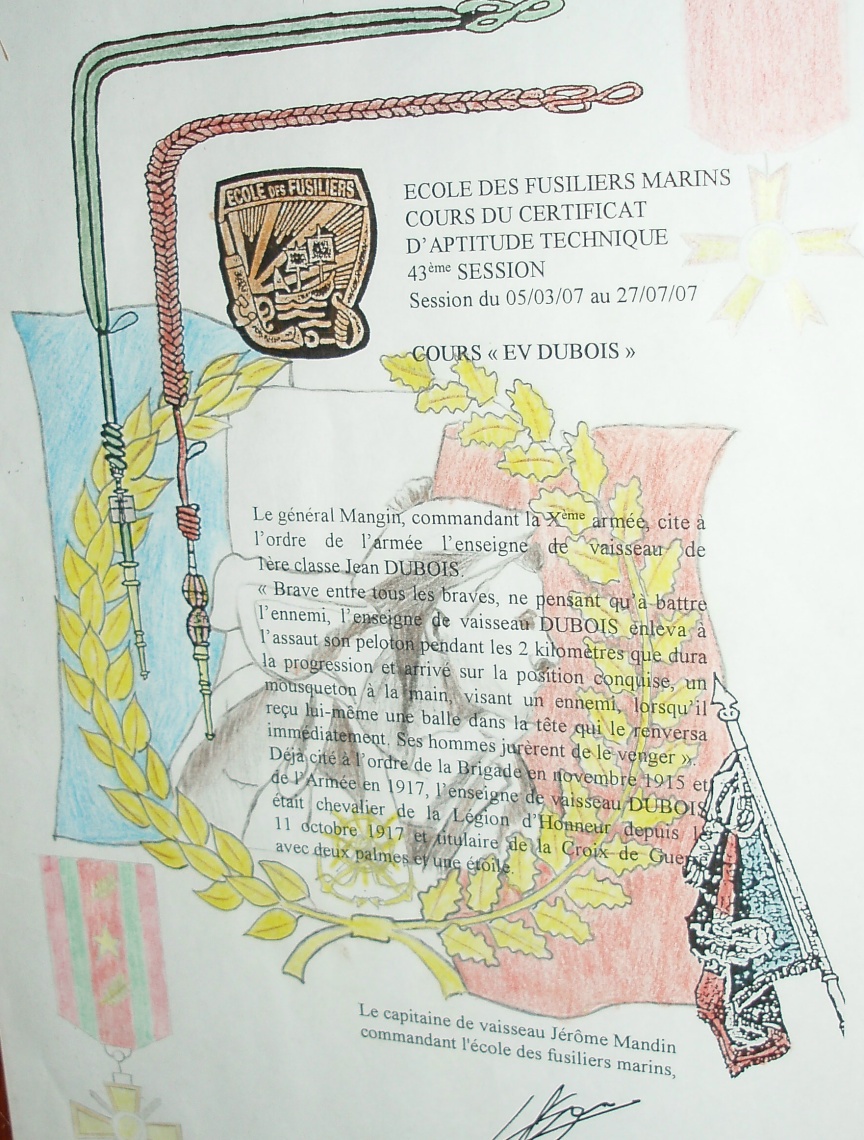 ECOLE DES FUSILIERS
ECOLE DES FUSILIERS MARINS
COURS DU CERTIFICAT
D'APTITUDE TECHNIQUE
43ème SESSION
Session du 05/03/07 au 27/07/07
COURS « EV DUBOIS »
Le général Mangin, commandant la Xème armée, cite à
l'ordre de l'armée l'enseigne de vaisseau de
1ère classe Jean DUBOIS.
« Brave entre tous les braves, ne pensant qu'à battre
l'ennemi, l'enseigne de vaisseau DUBOIS enleva à
l'assaut son peloton pendant les 2 kilomètres que dura
la progression et arrivé sur la position conquise, un
mousqueton à la main, visant un ennemi, lorsqu'il
reçu lui-même une balle dans la tête qui le renversa
immédiatement. Ses hommes jurèrent de le venger ».
Déjà cité à l'ordre de la Brigade en novembre 1915 et
de l'Armée en 1917, l'enseigne de vaisseau DUBOIS
était chevalier de la Légion d'Honneur depuis le
11 octobre 1917 et titulaire de la Croix de Guerre
avec deux palmes et une étoile.
Le capitaine de vaisseau Jérôme Mandin
commandant l'école des fusiliers marins,